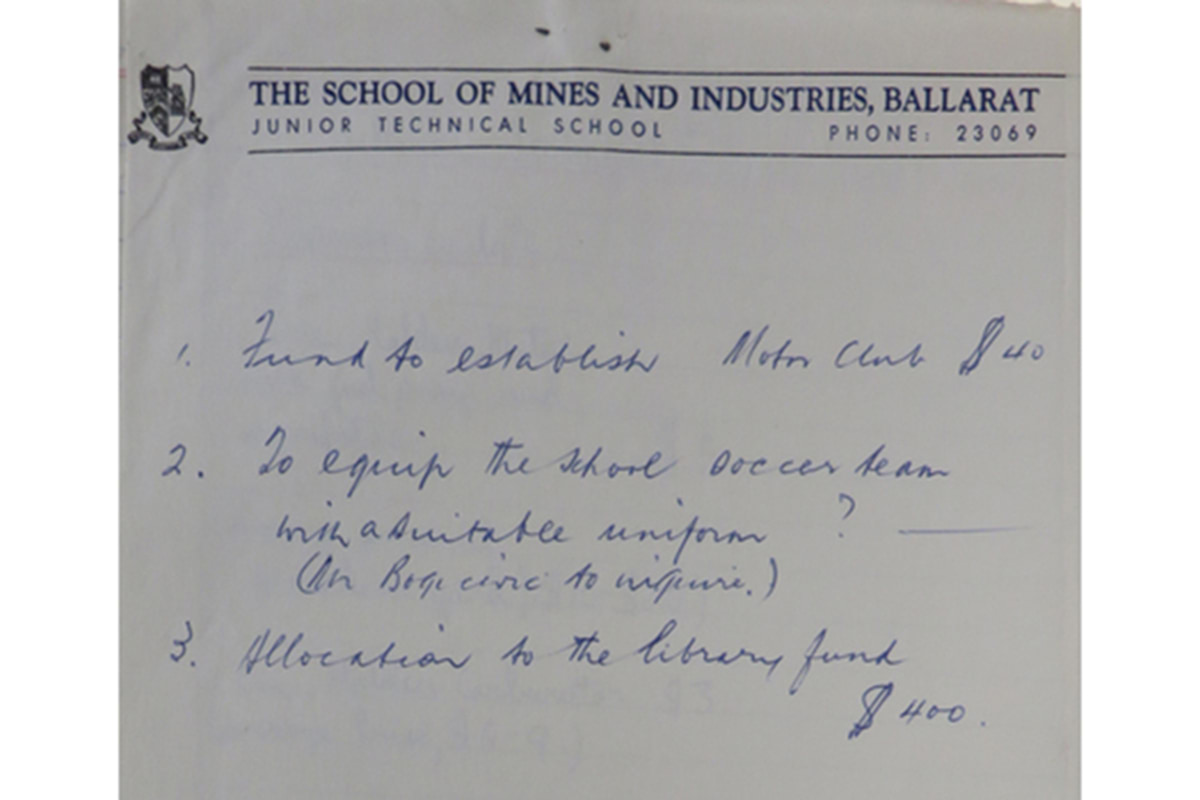 THE SCHOOL OF MINES AND INDUSTRIES, BALLARAT
JUNIOR TECHNICAL SCHOOL PHONE: 23069
1. Fund to establish Motor Club $40
2. To equip the school soccer team
with a suitable uniform ? —
(Mr to inquire.)
3. Allocation to the library fund
$400.